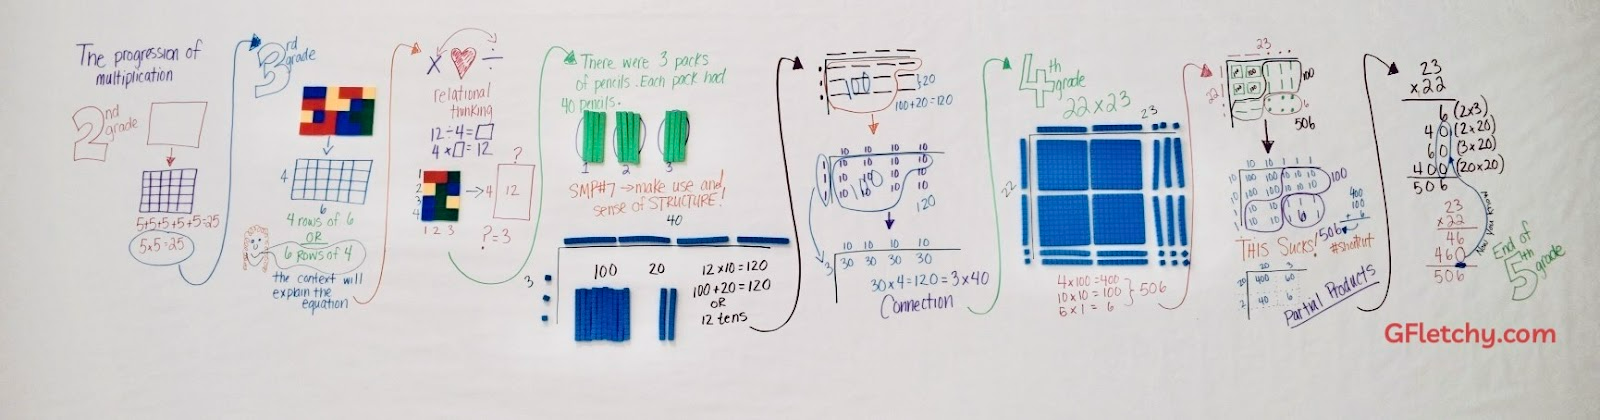 The progression of
multiplication
2nd
grade
5+5+5+5+5=25
5x5=25
3rd
grade
4
6
4 rows of 6
OR
6 rows of 4
the context will
explain the
equation
x ÷
relational
thinking
12÷4=□
4x□=12
1
2
3
4
1 2 3
?
4 12
?=3
There were 3 packs
of pencils. Each pack had
40 pencils.
1 2 3
SMP#7→make use and
sense of STRUCTURE!
40
3
100 20
12x10=120
100+20=120
OR
12 tens
100
20
100+20=120
10 10 10 10
1 10 10 10 10
1 10 10 10 10
1 10 10 10 10
100
120
10 10 10 10
3 30 30 30 30
30x4=120=3x40
Connection
4th
grade
22x23
23
22
4x100=400
10x10=100
5x1=6
506
23
22
100
6
506
10 10 1 1 1
100
6
400
100
+ 6
506
THIS Sucks!
#shortcut
20 3
20 400 60
2 40 6
Partial Products
23
x22
6 (2x3)
40 (2x20)
60 (3x20)
400 (20x20)
506
23
x22
46
460
506
Now you know
End of
5th
grade
GFletchy.com